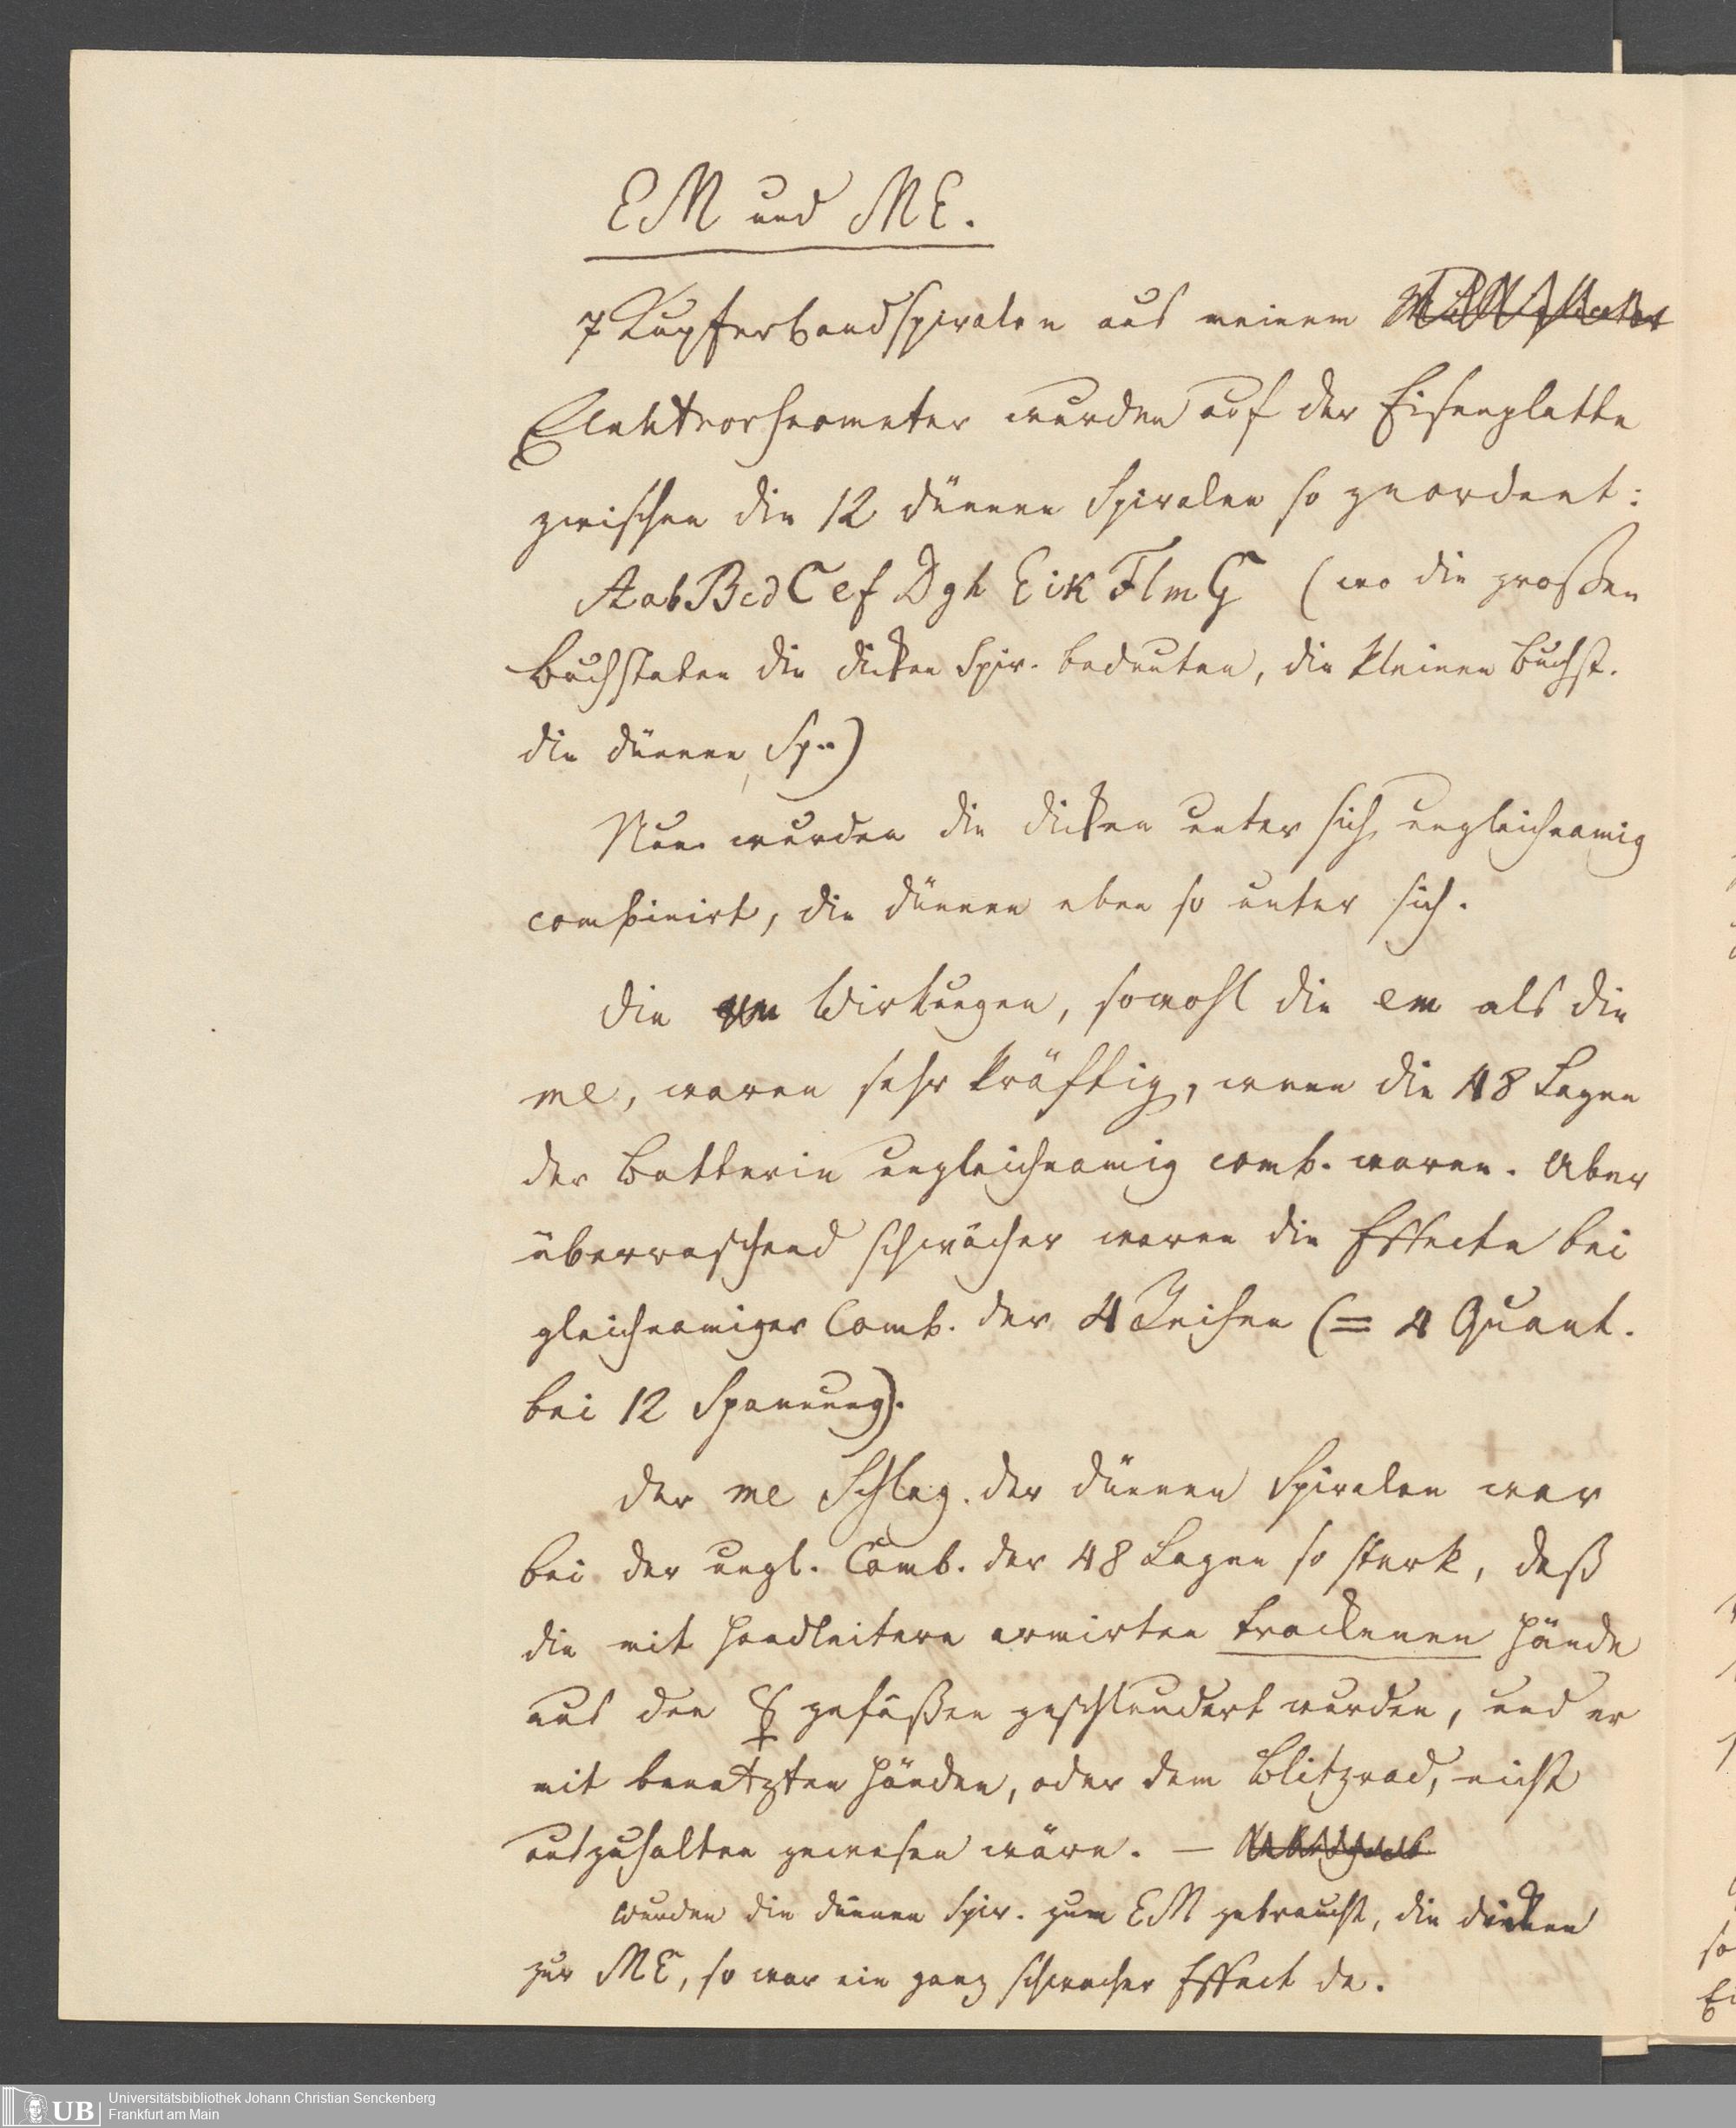 EM und ME.
7 Kupferbandspiralen aus meinem
Elektrorheometer wurden auf der Eisenplatte
zwischen die 12 dünnen Spiralen so geordnet:
AabBcdCefDghEikFlmG (wo die großen
Buchstaben die dicken Spir. bedeuten, die kleinen Buchst.
die dünnen Sp.)
Nun wurden die dicken unter sich ungleichnamig
combinirt, die dünnen eben so unter sich.
Die Wirkungen, sowohl die em als die
me, waren sehr kräftig, wenn die 48 Lagen
der Batterie ungleichnamig comb. waren. Aber
überraschend schwächer waren die Effecte bei
gleichnamiger Comb. der 4 Reihen (= 4 Quant.
bei 12 Spannung).
Der me Schlag der dünnen Spiralen war
bei der ungl. Comb. der 48 Lagen so stark, daß
die mit Handleitern armirten trockenen Hände
aus den ☿ gefäßen geschleudert wurden, und er
mit benetzten Händen, oder dem Blitzrad, nicht
auszuhalten gewesen wäre. —
Wurden die dünnen Spir. zum EM gebraucht, die dicken
zur ME, so war ein ganz schwacher Effect da.
UB
Universitätsbibliothek Johann Christian Senckenberg
Frankfurt am Main